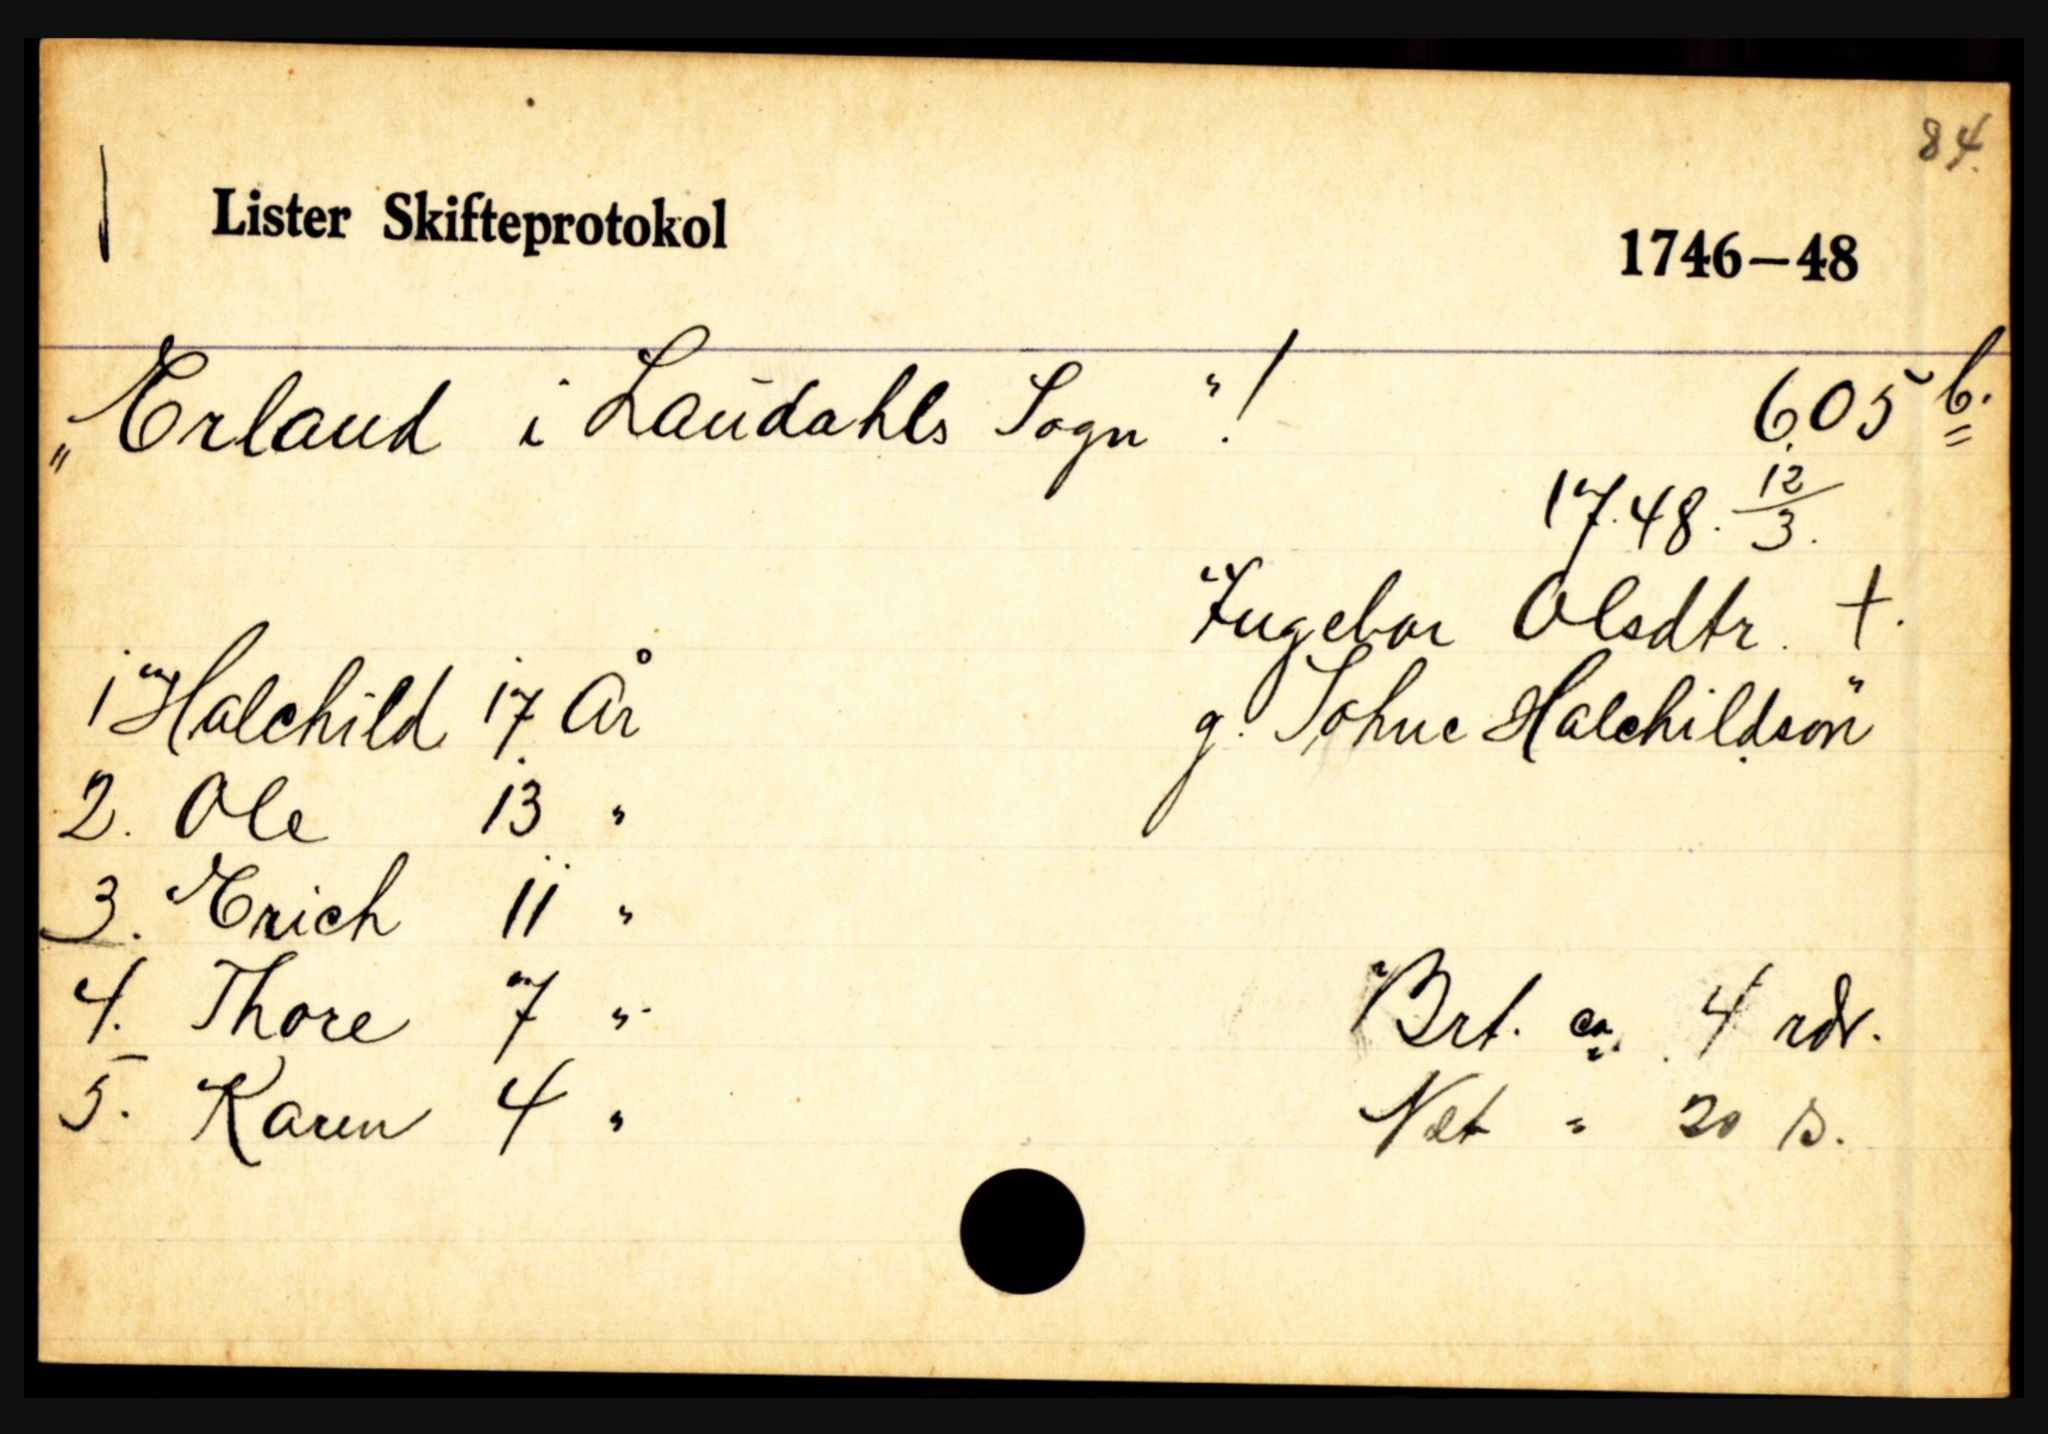 84.
Lister Skifteprotokol 1746-48
"Erland i Laudahls Sogn"! 605 b.
1748. 12/3.
Ingebor Olsdtr. †.
g. Tohne Halchildsøn"
1 Halchild 17 År
2. Ole 13 "
3. Erich 11 "
4. Thore 7 "
5. Karen 4 "
Brt. ca. 4 rdr.
Net " 20 s.